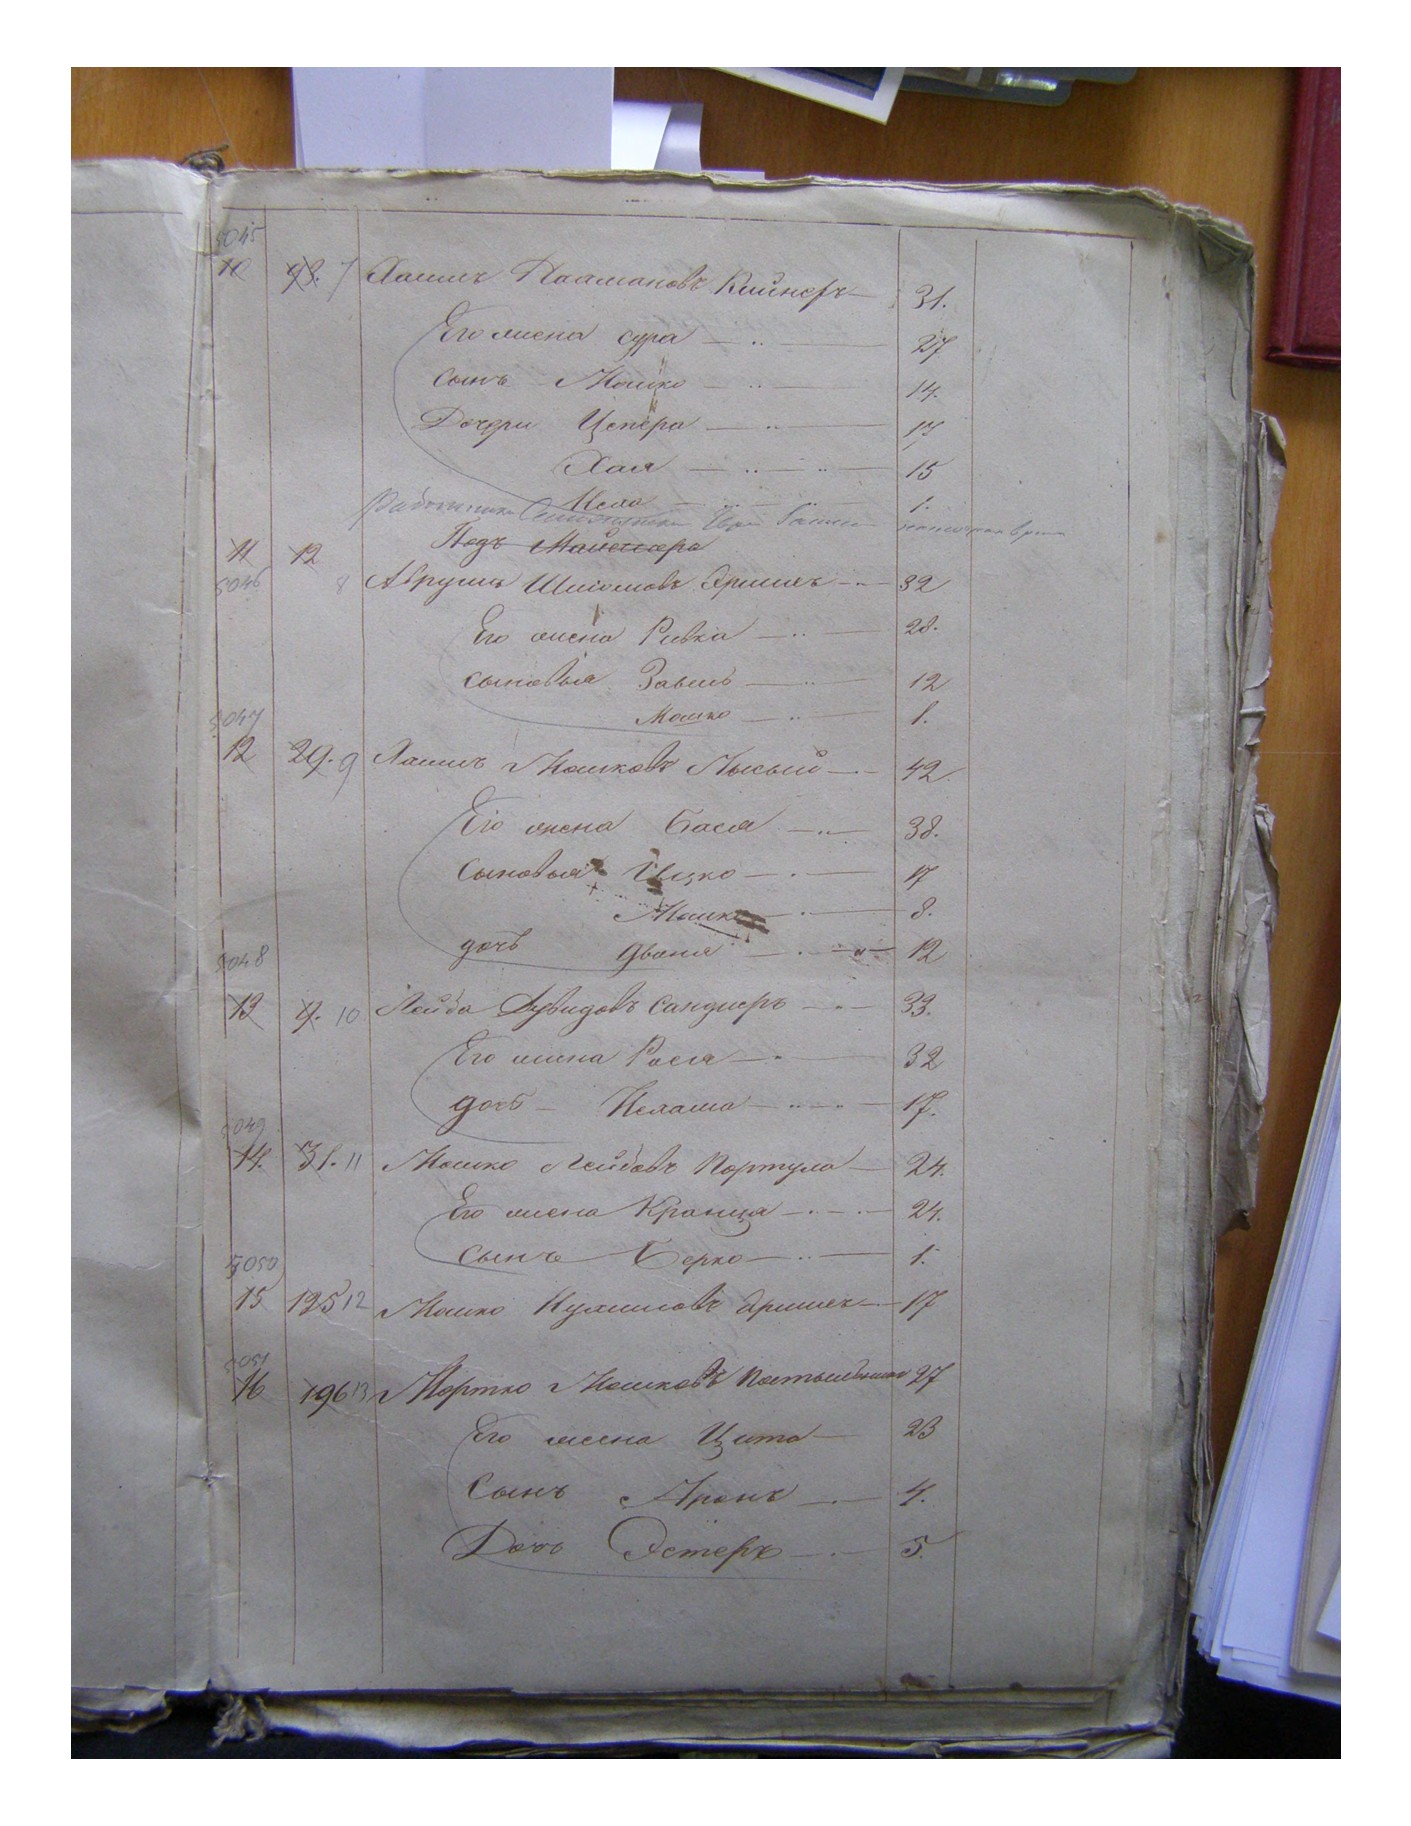 5045
10 93. 7 Хаимъ Нахмановъ Кийнеръ 31.
Его жена Сура 27
сынъ Мошко 14.
Дочери Ципера 17
Хая 15
1.
Работника
11 12 Подъ
5046 8 Аврумъ Шліомовъ 32
Его жена Ривка 28.
сыновья Завиль 12
Мошко 1.
5047
12 29. 9 Хаимъ Мошковъ Лысый 42
Его жена Бася 38.
Сыновья Ицко 17
Мошко 8.
дочь Двоня 12
5048
13 9. 10 Лейба Дувидовъ Сандлеръ 33.
Его жена Рося 32
дочь 17.
5049
14. 31. 11 Мошко Лейбовъ Портула 24.
Его жена Кройнця 24.
сынъ Берко 1.
5050
15 125 12 Мошко Нухимовъ 17
5051
16 196 13 Мортко Мошковъ 27
Его жена Цита 23
Сынъ Аронъ 4.
Дочь Эстеръ 5.